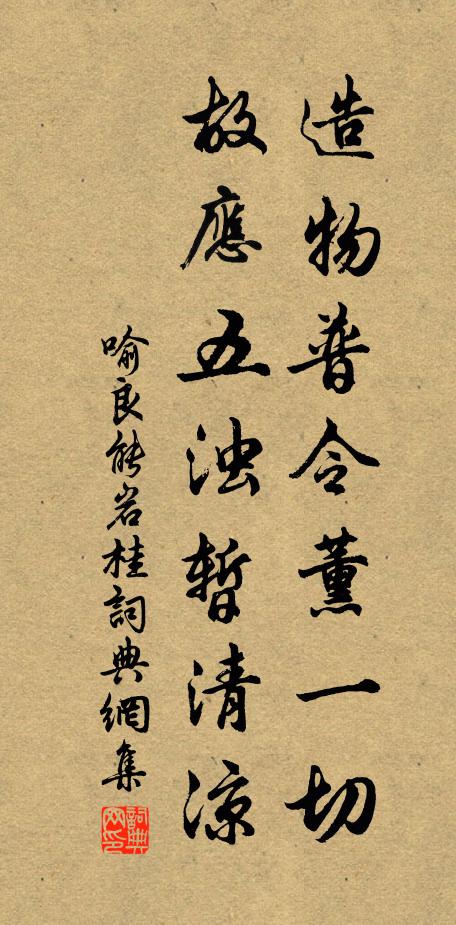 造物普令薰一切
故應五浊暫清涼
喻良能岩桂詞典網集
詞典網印